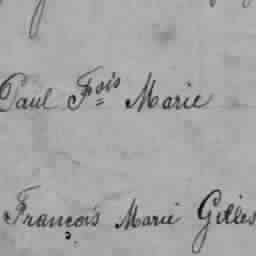 Paul Fois Marie
François Marie Gilles